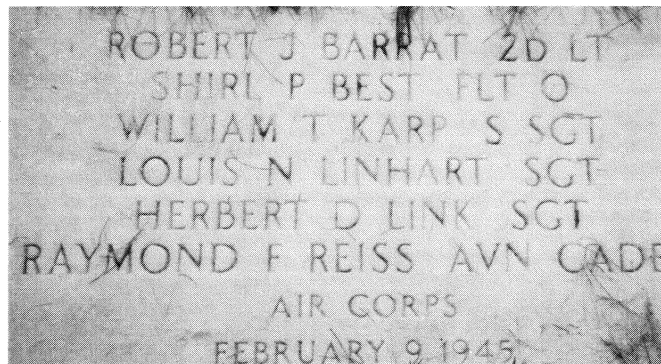 ROBERT J BARRAT 2D LT
SHIRL P BEST FLT O
WILLIAM T KARP S SGT
LOUIS N LINHART SGT
HERBERT D LINK SGT
RAYMOND F REISS AVN CADE
AIR CORPS
FEBRUARY 9 1945